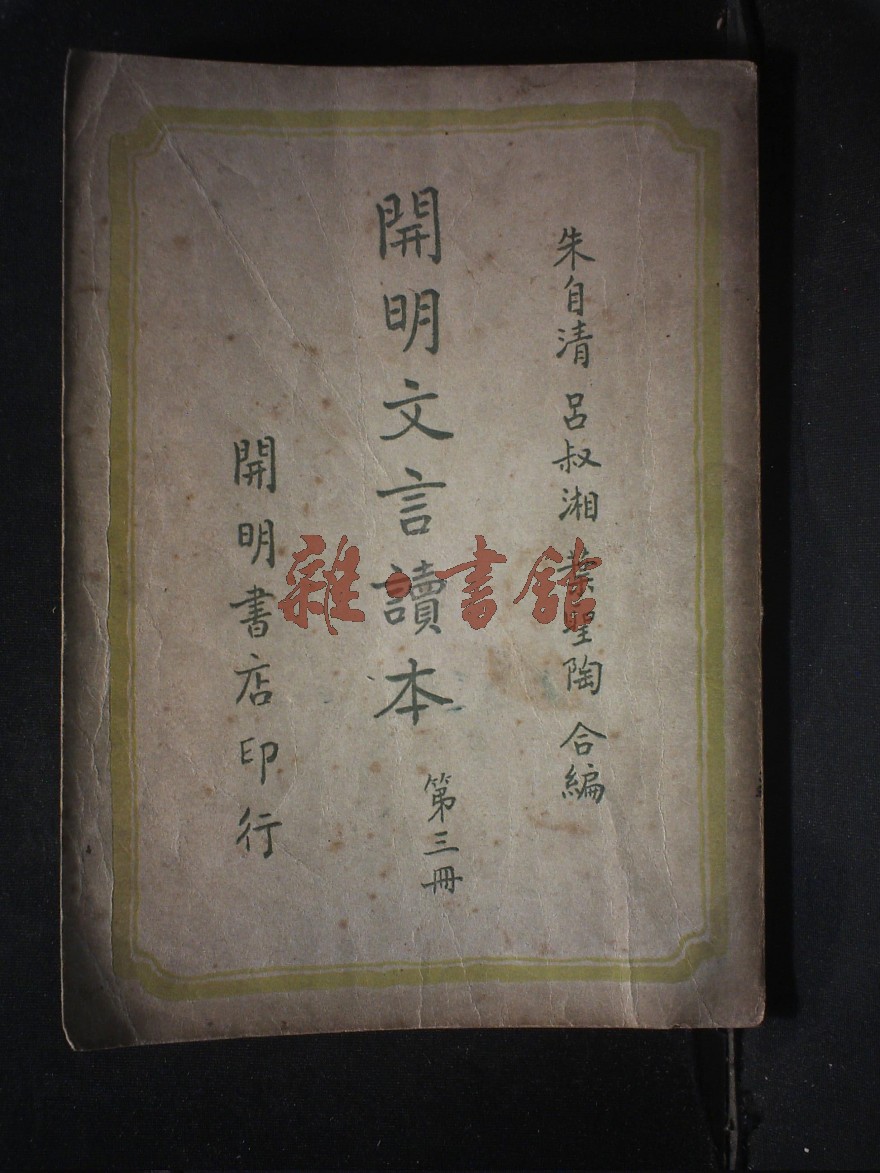 朱自清 呂叔湘 葉聖陶 合編
開明文言讀本
第三冊
開明書店印行
雜·書館